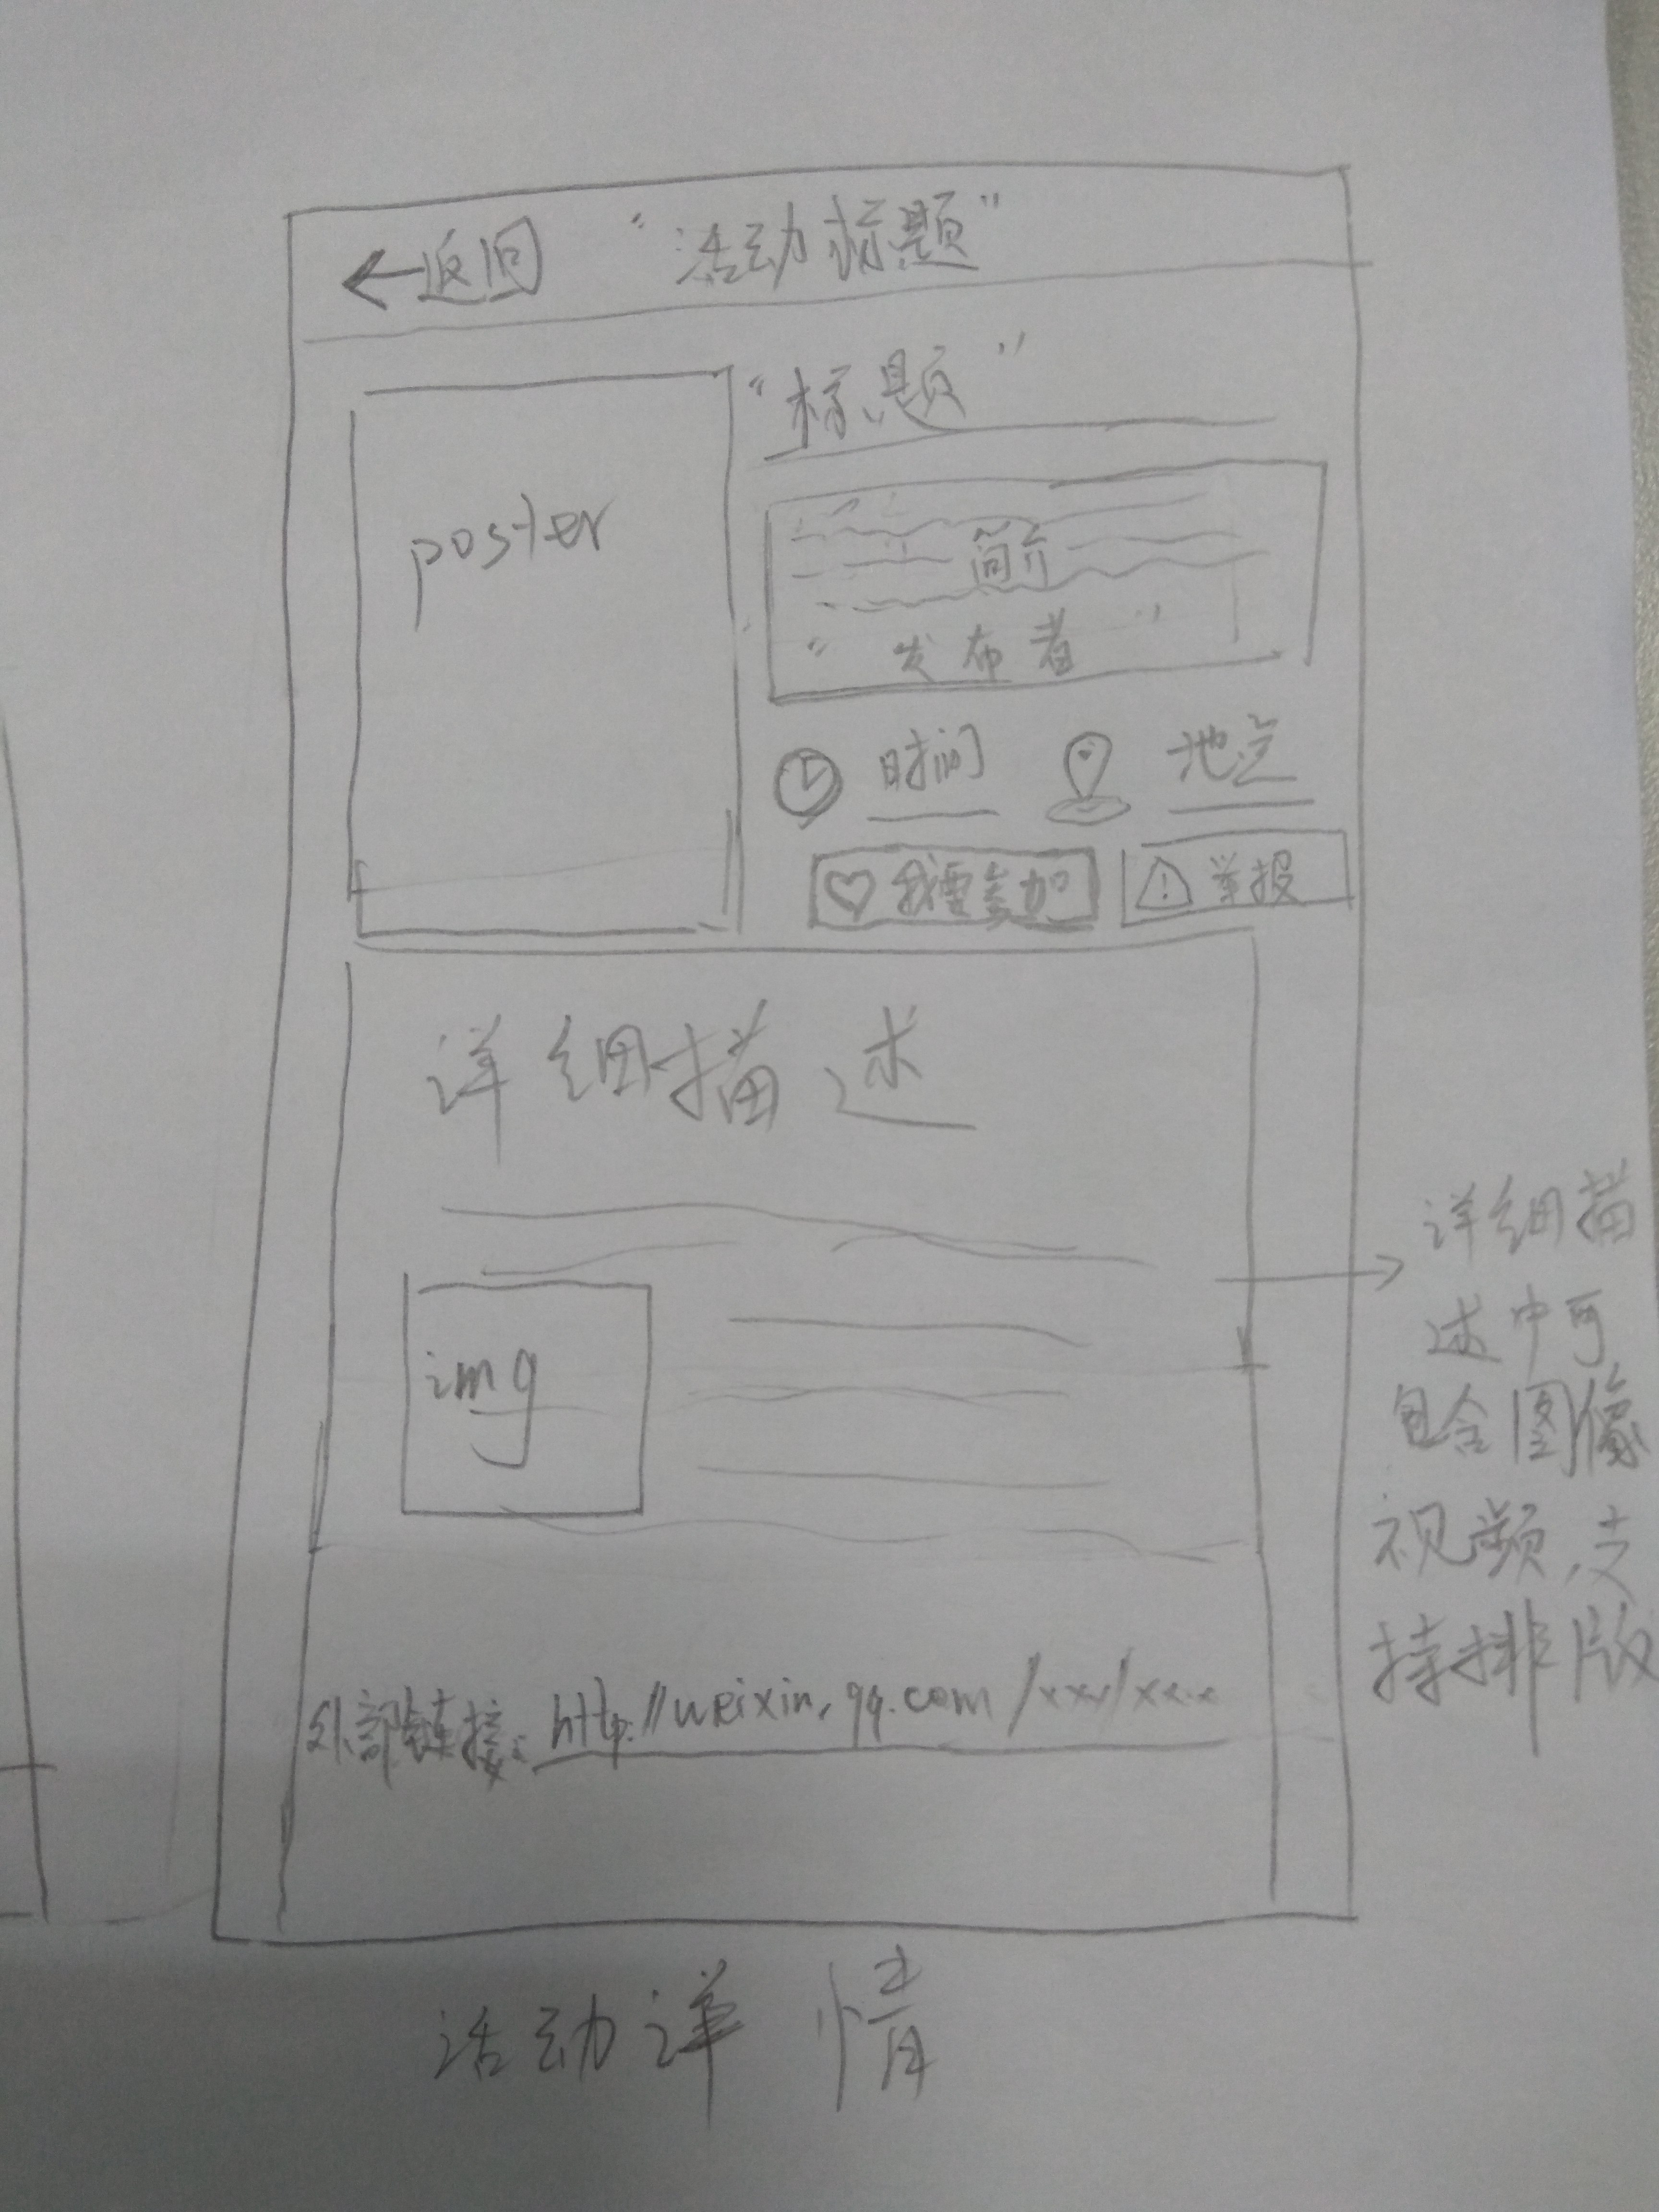 ←返回 "活动标题"
"标题"
poster
简介
"发布者"
时间 地点
我要参加 举报
详细描述
img
外部链接: http://weixin.qq.com/xxx/xxxx
详细描
述中可
包含图像
视频,支
持排版
活动详情